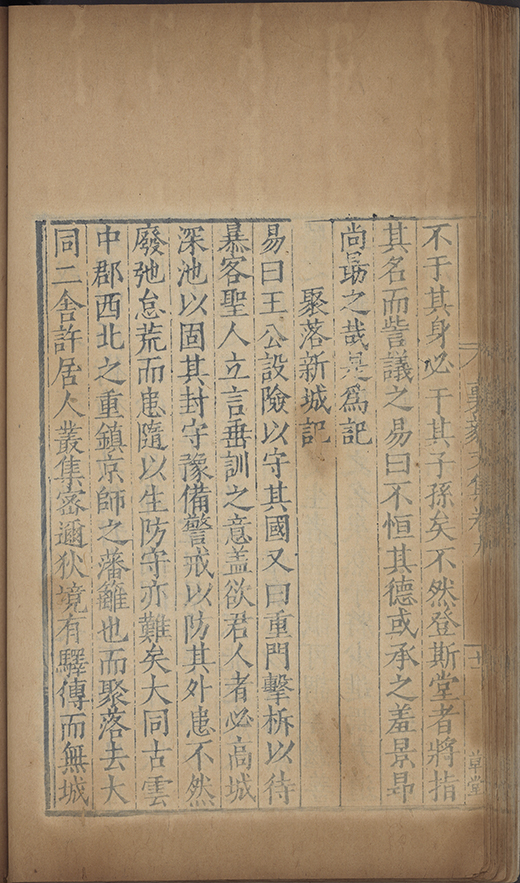 不于其身必于其子孫矣不然登斯堂者將指
其名而訾議之易曰不恒其德或承之羞景昴
尚勗之哉是為記
聚落新城記
易曰王公設險以守其國又曰重門擊柝以待
暴客聖人立言垂訓之意盖欲君人者必高城
深池以固其封守豫備警戒以防其外患不然
廢弛怠荒而患隨以生防守亦難矣大同古雲
中郡西北之重鎮京師之藩籬也而聚落去大
同二舍許居人叢集密邇狄境有驛傳而無城